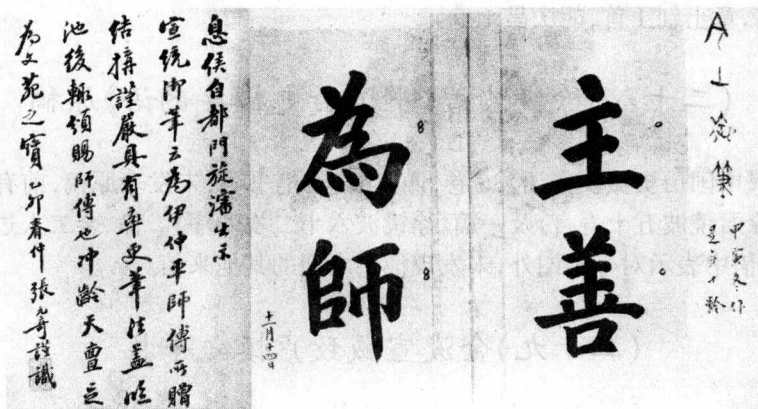 御筆
甲寅冬作
是年十齡
主善
為師
十一月十四日
息侯自都門旋瀋出示
宣統御筆云為伊仲平師傅所贈
結構謹嚴具有率更筆法蓋臨
池後輒頒賜師傅也沖齡天亶足
為文苑之寶乙卯春仲張之奇謹識